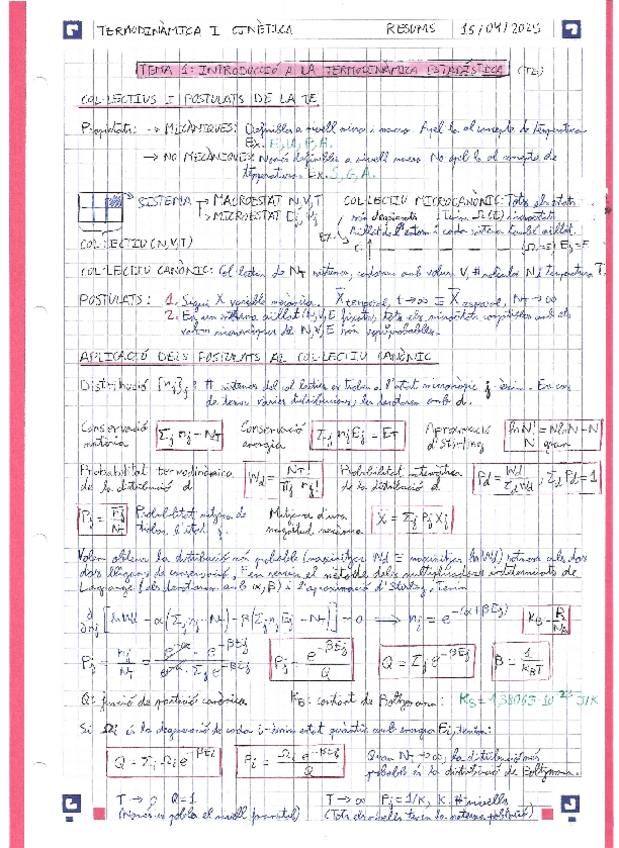 TERMODINÀMICA I CINÈTICA RESUMS 15/04/2025
TEMA 1: INTRODUCCIÓ A LA TERMODINÀMICA ESTADÍSTICA (T21)
COL·LECTIUS I POSTULATS DE LA TE
Propietats: → MECÀNIQUES: Definibles a nivell micro i macro. Apel·la al concepte de temperatura
Ex.
→ NO MECÀNIQUES: Només definibles a nivell macro. No apel·la al concepte de
temperatura. Ex. S, G, A.
SISTEMA → MACROESTAT N,V,T
→ MICROESTAT
COL·LECTIU MICROCANÒNIC: Tots els estats
COL·LECTIU (N,V,T)
COL·LECTIU CANÒNIC: Col·lectiu de N_T sistemes, amb volum V, # N i temperatura T.
POSTULATS: 1. Sigui X variable mecànica. X̄ temporal, t→∞ ≡ X̄ , N_T → ∞
2. En un sistema aïllat (N,V,E fixats), tots els microestats compatibles amb els
valors de N,V,E són equiprobables.
APLICACIÓ DELS POSTULATS AL COL·LECTIU CANÒNIC
Distribució {n_j}_j: # sistemes del col·lectiu es troben a l'estat j-èsim. En cas
de tenir vàries distribucions, les denotarem amb d.
Conservació matèria Σ_j n_j = N_T Conservació energia Σ_j n_j E_j = E_T Aproximació d'Stirling ln N! = N ln N − N N gran
Probabilitat termodinàmica de la distribució d W_d = N_T! / Π_j n_j! Probabilitat de la distribució d P_d = W_d / Σ_d W_d ; Σ_d P_d = 1
P_j = n̄_j / N_T Probabilitat mitjana de trobar l'estat j. Mitjana d'una magnitud mecànica X̄ = Σ_j P_j X_j
Volem obtenir la distribució més probable (maximitzar W_d ≡ maximitzar ln W_d) sotmesa als dos
de conservació, Fem servir el mètode dels multiplicadors indeterminats de
Lagrange (els denotarem amb α, β) i l'aproximació d'Stirling, Tenim
∂/∂n_j [ln W_d − α(Σ_j n_j − N_T) − β(Σ_j n_j E_j − N_T)] = 0 ⟹ n_j = e^−(α+βE_j) K_B = R/N_A
P_j = n_j/N_T = e^−α · e^−βE_j / e^−α · Σ_j e^−βE_j P_j = e^−βE_j / Q Q = Σ_j e^−βE_j β = 1/K_BT
Q: funció de partició canònica K_B: constant de Boltzmann: K_B = 1,38065·10^−23 J/K
Si Ω_i és la degeneració de cada i-èsim estat quàntic amb energia E_i, tenim:
Q = Σ_i Ω_i e^−βE_i P_i = Ω_i e^−βE_i / Q Quan N_T → ∞, la distribució més
probable és la distribució de Boltzmann.
T → 0 Q=1 T → ∞ P_j = 1/K, K: # nivells
(només es pobla el nivell fonamental) (Tots els nivells tenen la mateixa població)